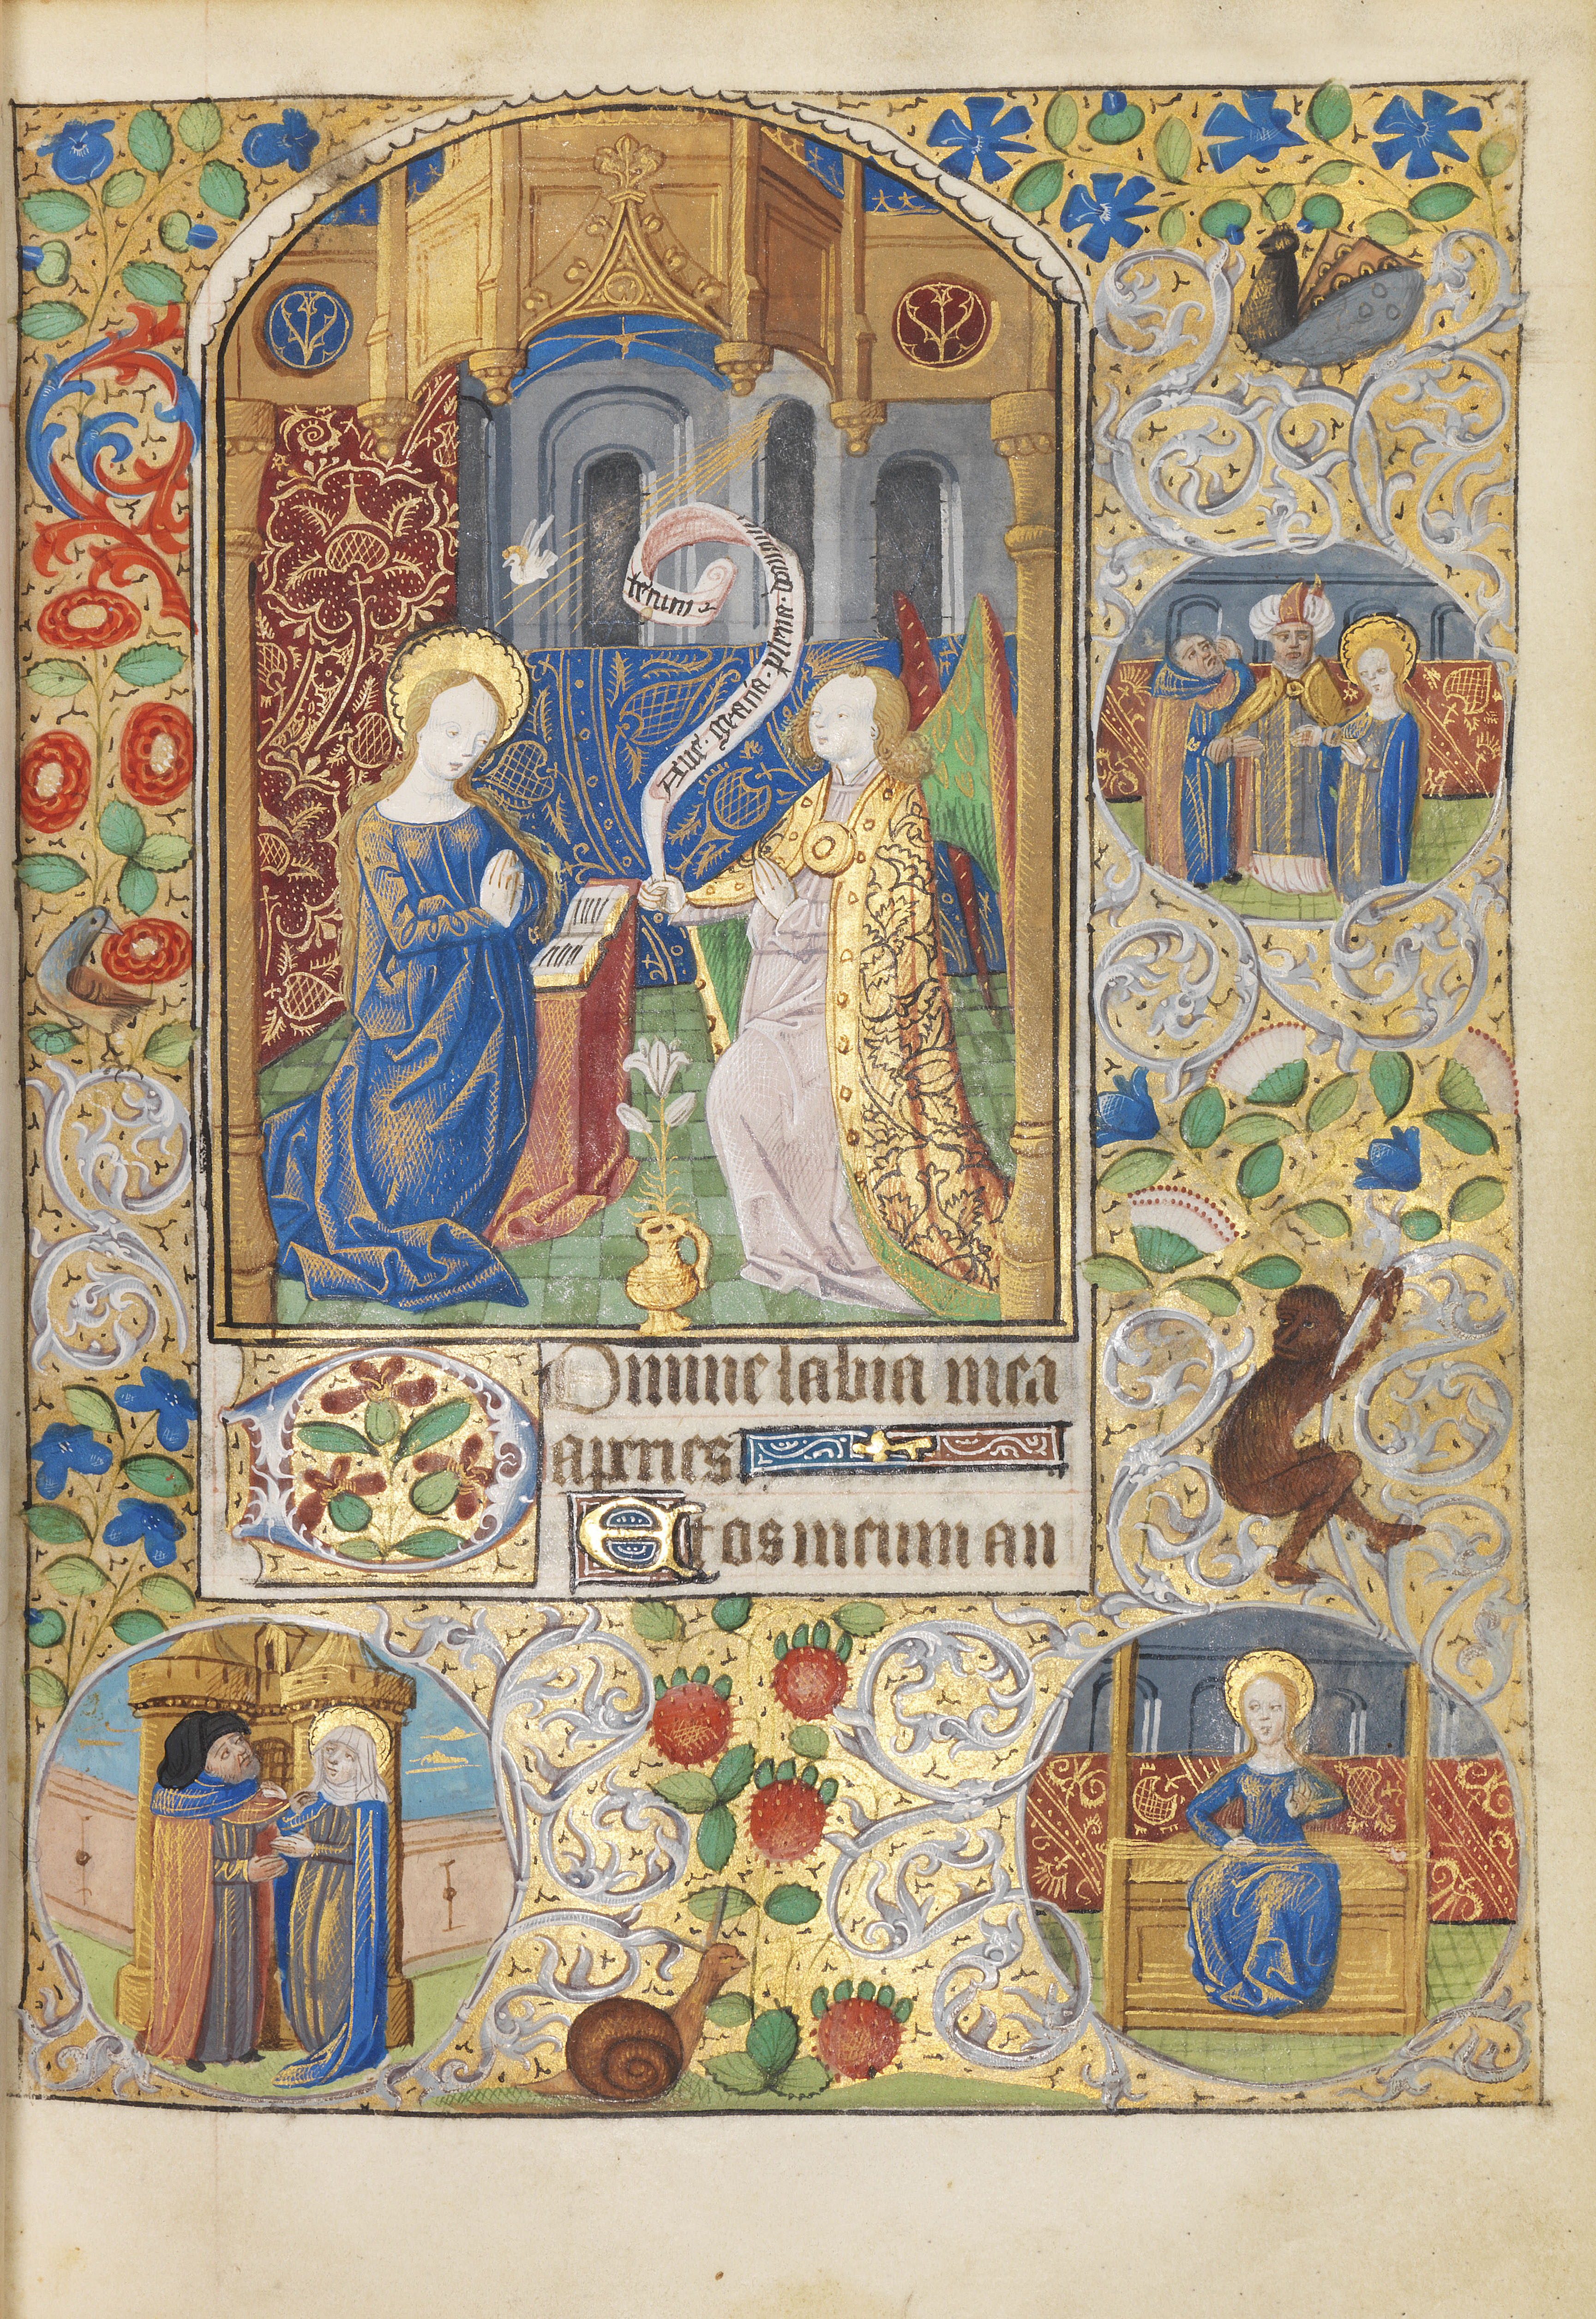 Aue. gracia. plena. dominus
tecum
DOmine labia mea
aperies
Et os meum an